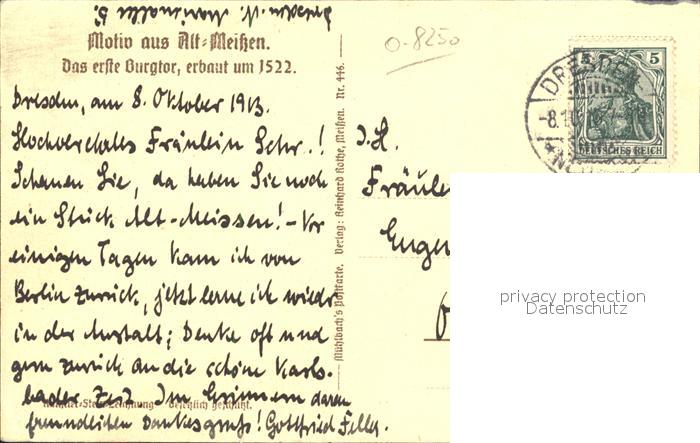 Dresden. N. Marienallee 5.
Motiv aus Alt-Meißen.
Das erste Burgtor, erbaut um 1522.
Dresden, am 8. Oktober 1913.
Hochverehrtes Fräulein Schr.!
Schauen Sie, da haben Sie noch
ein Stück Alt-Meissen! - Vor
einigen Tagen kam ich von
Berlin zurück, jetzt lerne ich wieder
in der Anstalt; Denke oft und
gern zurück an die schöne Karls-
bader Zeit. Im Erinnern daran
freundlichen Dankesgruß! Gottfried Feller.
gesetzlich geschützt.
Mühlbach's Postkarte. Verlag: Reinhard Rothe, Meißen. Nr. 446.
0-8250
I. H.
Fräule
Eugen
DRESDEN
-8.10
5
DEUTSCHES REICH
privacy protection
Datenschutz